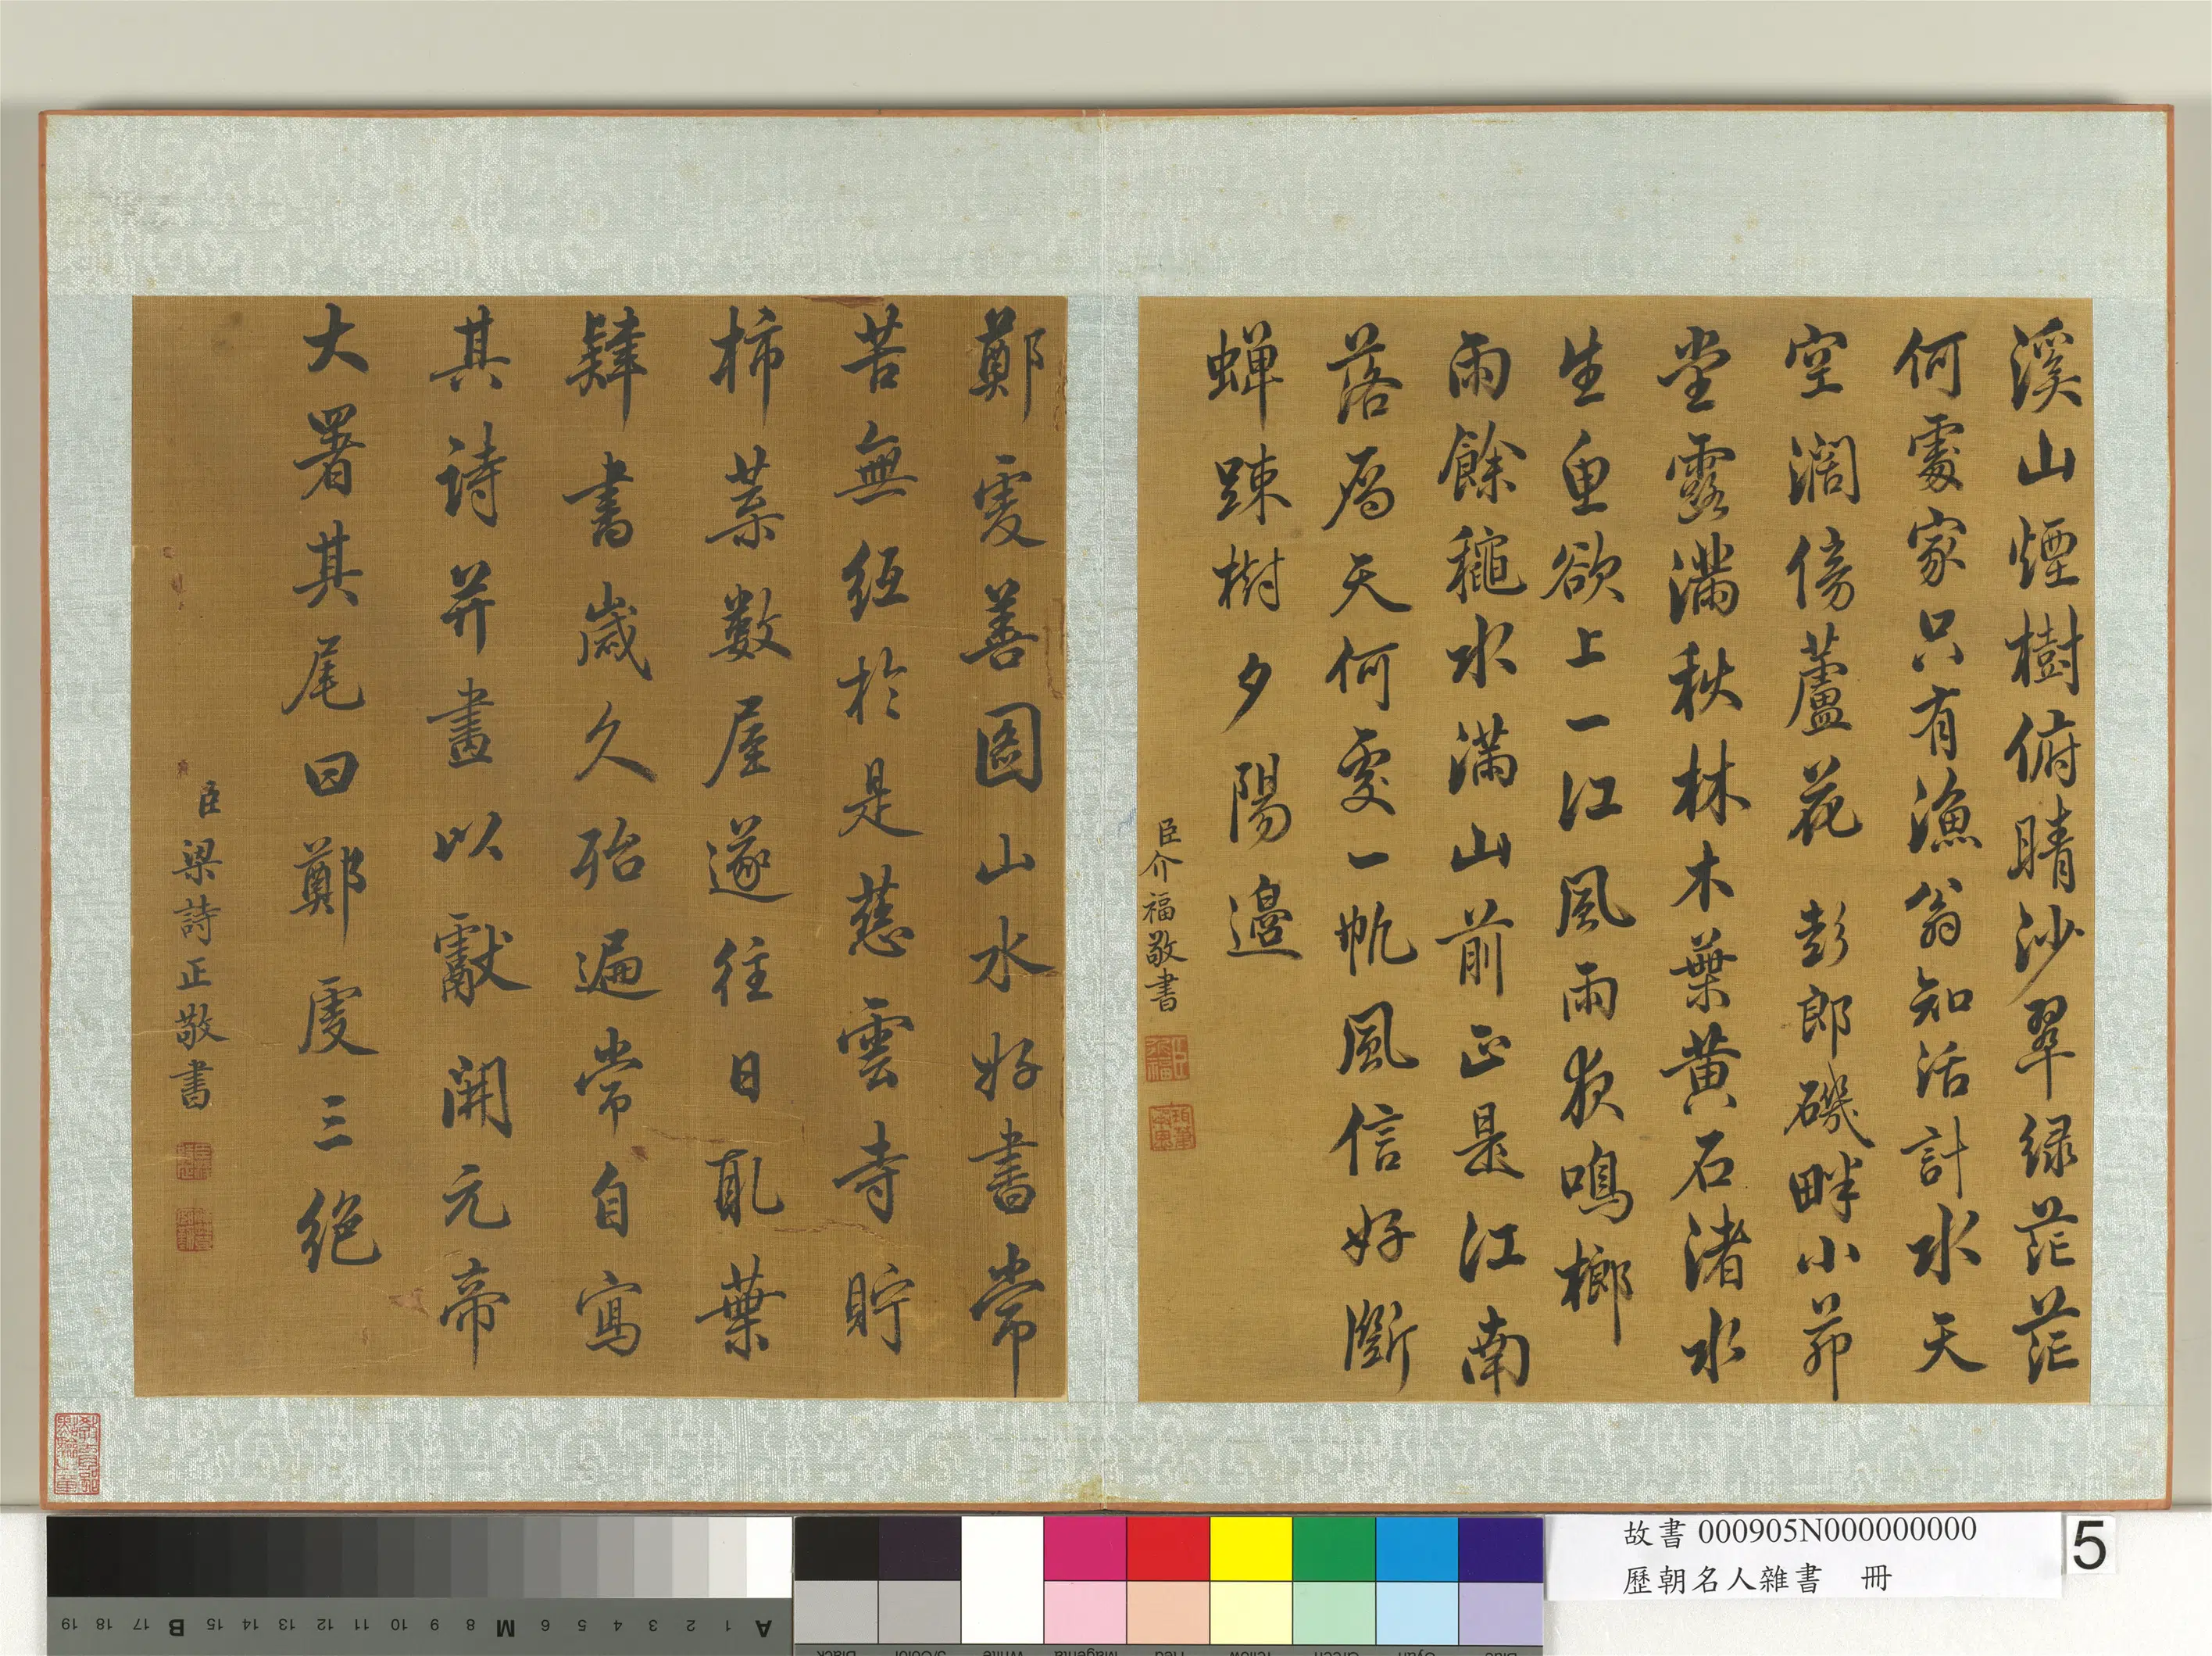 溪山煙樹俯晴沙翠綠茫茫
何處家只有漁翁知活計水天
空濶傍蘆花 彭郎磯畔小茆
堂露滿秋林木葉黃石渚水
生魚欲上一江風雨夜鳴榔
雨餘穐水滿山前正是江南
落雁天何處一帆風信好斷
蟬踈樹夕陽邊
臣介福敬書
鄭虔善圖山水好書常
苦無紙於是慈雲寺貯
柿葉數屋遂往日取葉
肄書歲久殆遍常自寫
其詩并畫以獻開元帝
大署其尾曰鄭虔三絕
臣梁詩正敬書
故書 000905N000000000
歷朝名人雜書 冊
5
19 18 17 B 15 14 13 12 11 10 9 8 M 6 5 4 3 2 1 A
Black 3/Color White Magenta Red Yellow Green Cyan Blue